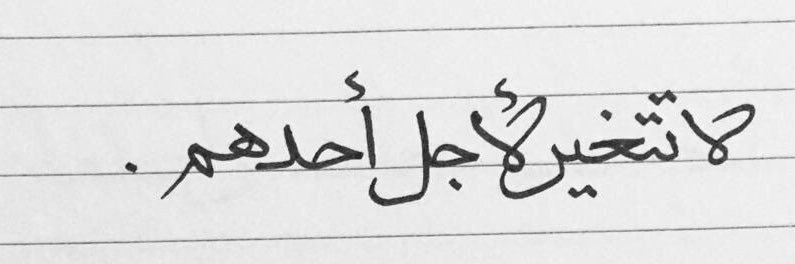 لا تتغير لأجل أحدهم .